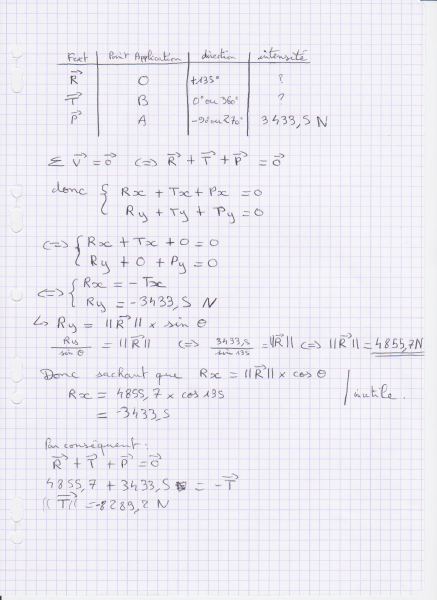 Fact Point Application direction intensité
R⃗ O +135° ?
T⃗ B 0° ou 360° ?
P⃗ A -90 ou 270° 3433,5 N
Σ V⃗ = 0⃗ (=) R⃗ + T⃗ + P⃗ = 0⃗
donc { Rx + Tx + Px = 0
Ry + Ty + Py = 0
(=) { Rx + Tx + 0 = 0
Ry + 0 + Py = 0
(=) { Rx = - Tx
Ry = -3433,5 N
↳ Ry = ||R⃗|| × sin θ
Ry / sin θ = ||R⃗|| (=) 3433,5 / sin 135 = ||R⃗|| (=) ||R⃗|| = 4855,7N
Donc sachant que Rx = ||R⃗|| × cos θ
Rx = 4855,7 × cos 135 inutile.
= -3433,5
Par conséquent :
R⃗ + T⃗ + P⃗ = 0⃗
4855,7 + 3433,5 = -T⃗
||T⃗|| = -8289,2 N